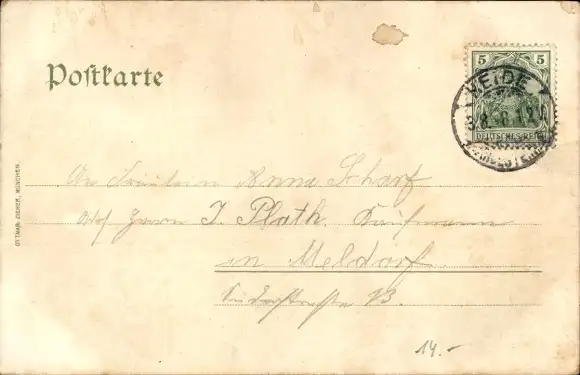 Postkarte
5 5
DEUTSCHES REICH
HEIDE
OTTMAR ZIEHER, MÜNCHEN.
An Fräulein Anna Scharf
Herrn J. Plath, Kaufmann
in Meldorf.
Süderstraße 13.
14.-